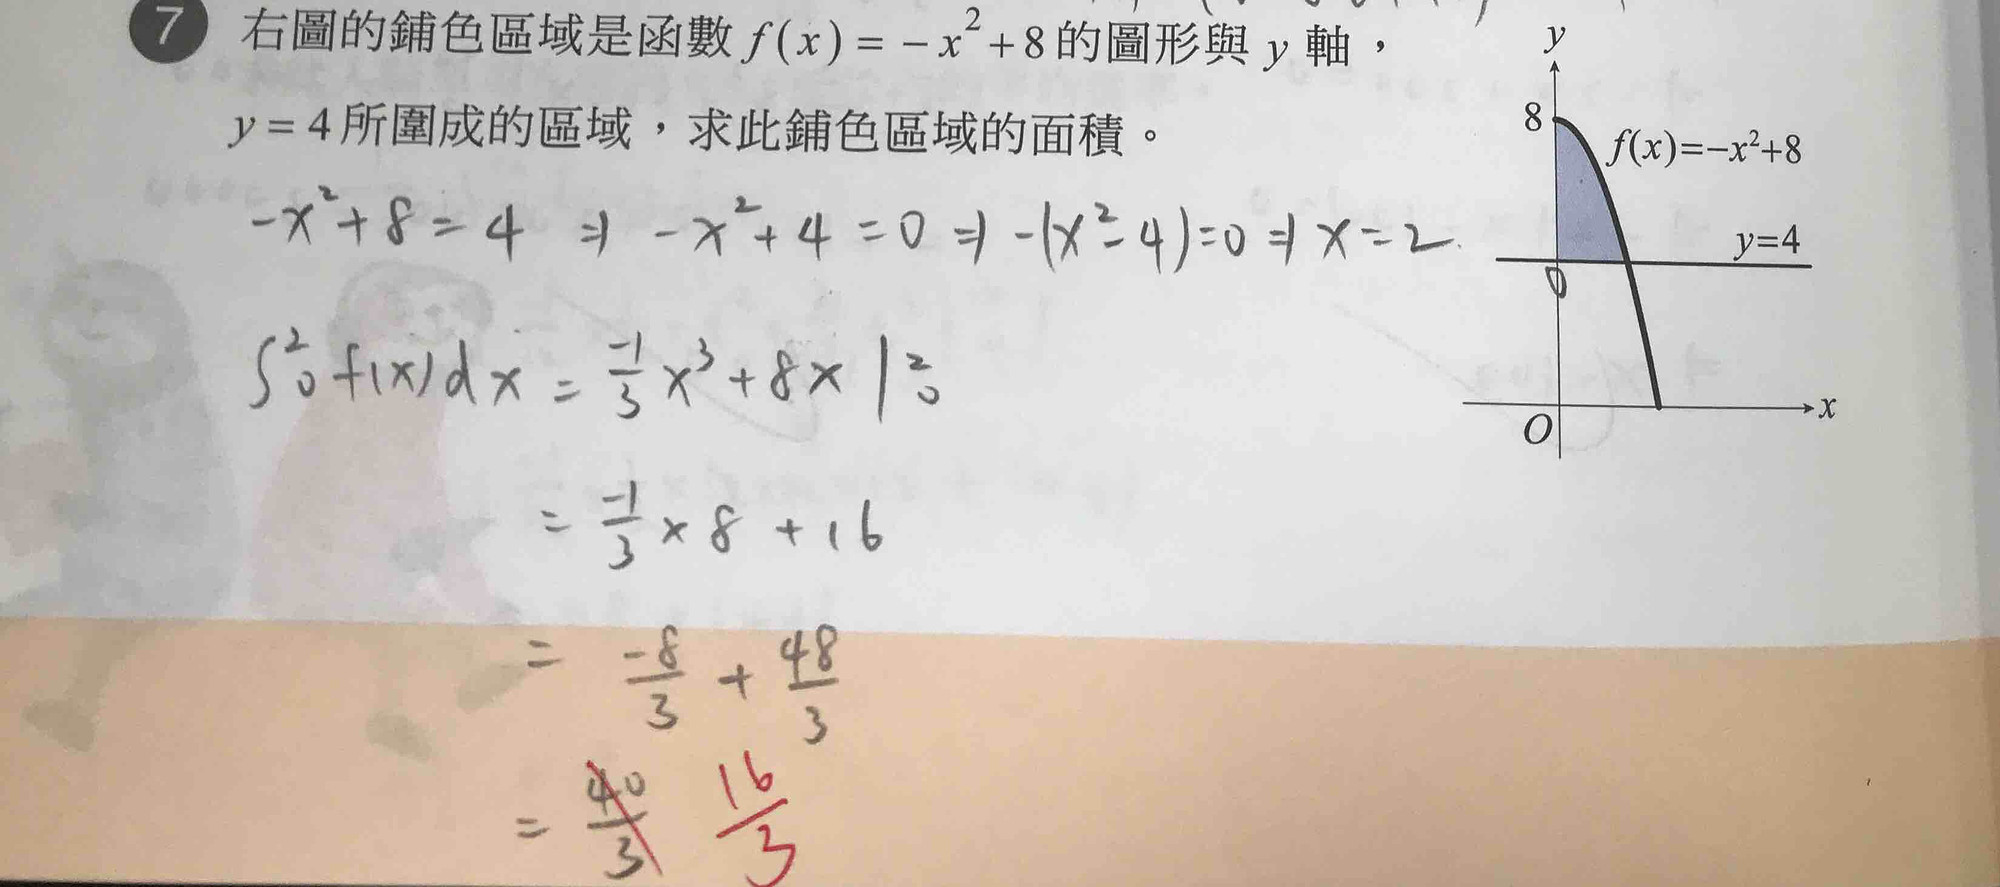 7 右圖的鋪色區域是函數 f(x) = -x²+8 的圖形與 y 軸，
y = 4 所圍成的區域，求此鋪色區域的面積。
-x²+8 = 4 ⇒ -x²+4 = 0 ⇒ -(x²-4)=0 ⇒ x=2
∫₀² f(x)dx = -1/3 x³+8x |₀²
= -1/3 × 8 + 16
= -8/3 + 48/3
= 40/3 16/3
y
8
f(x)=-x²+8
y=4
0
O
x